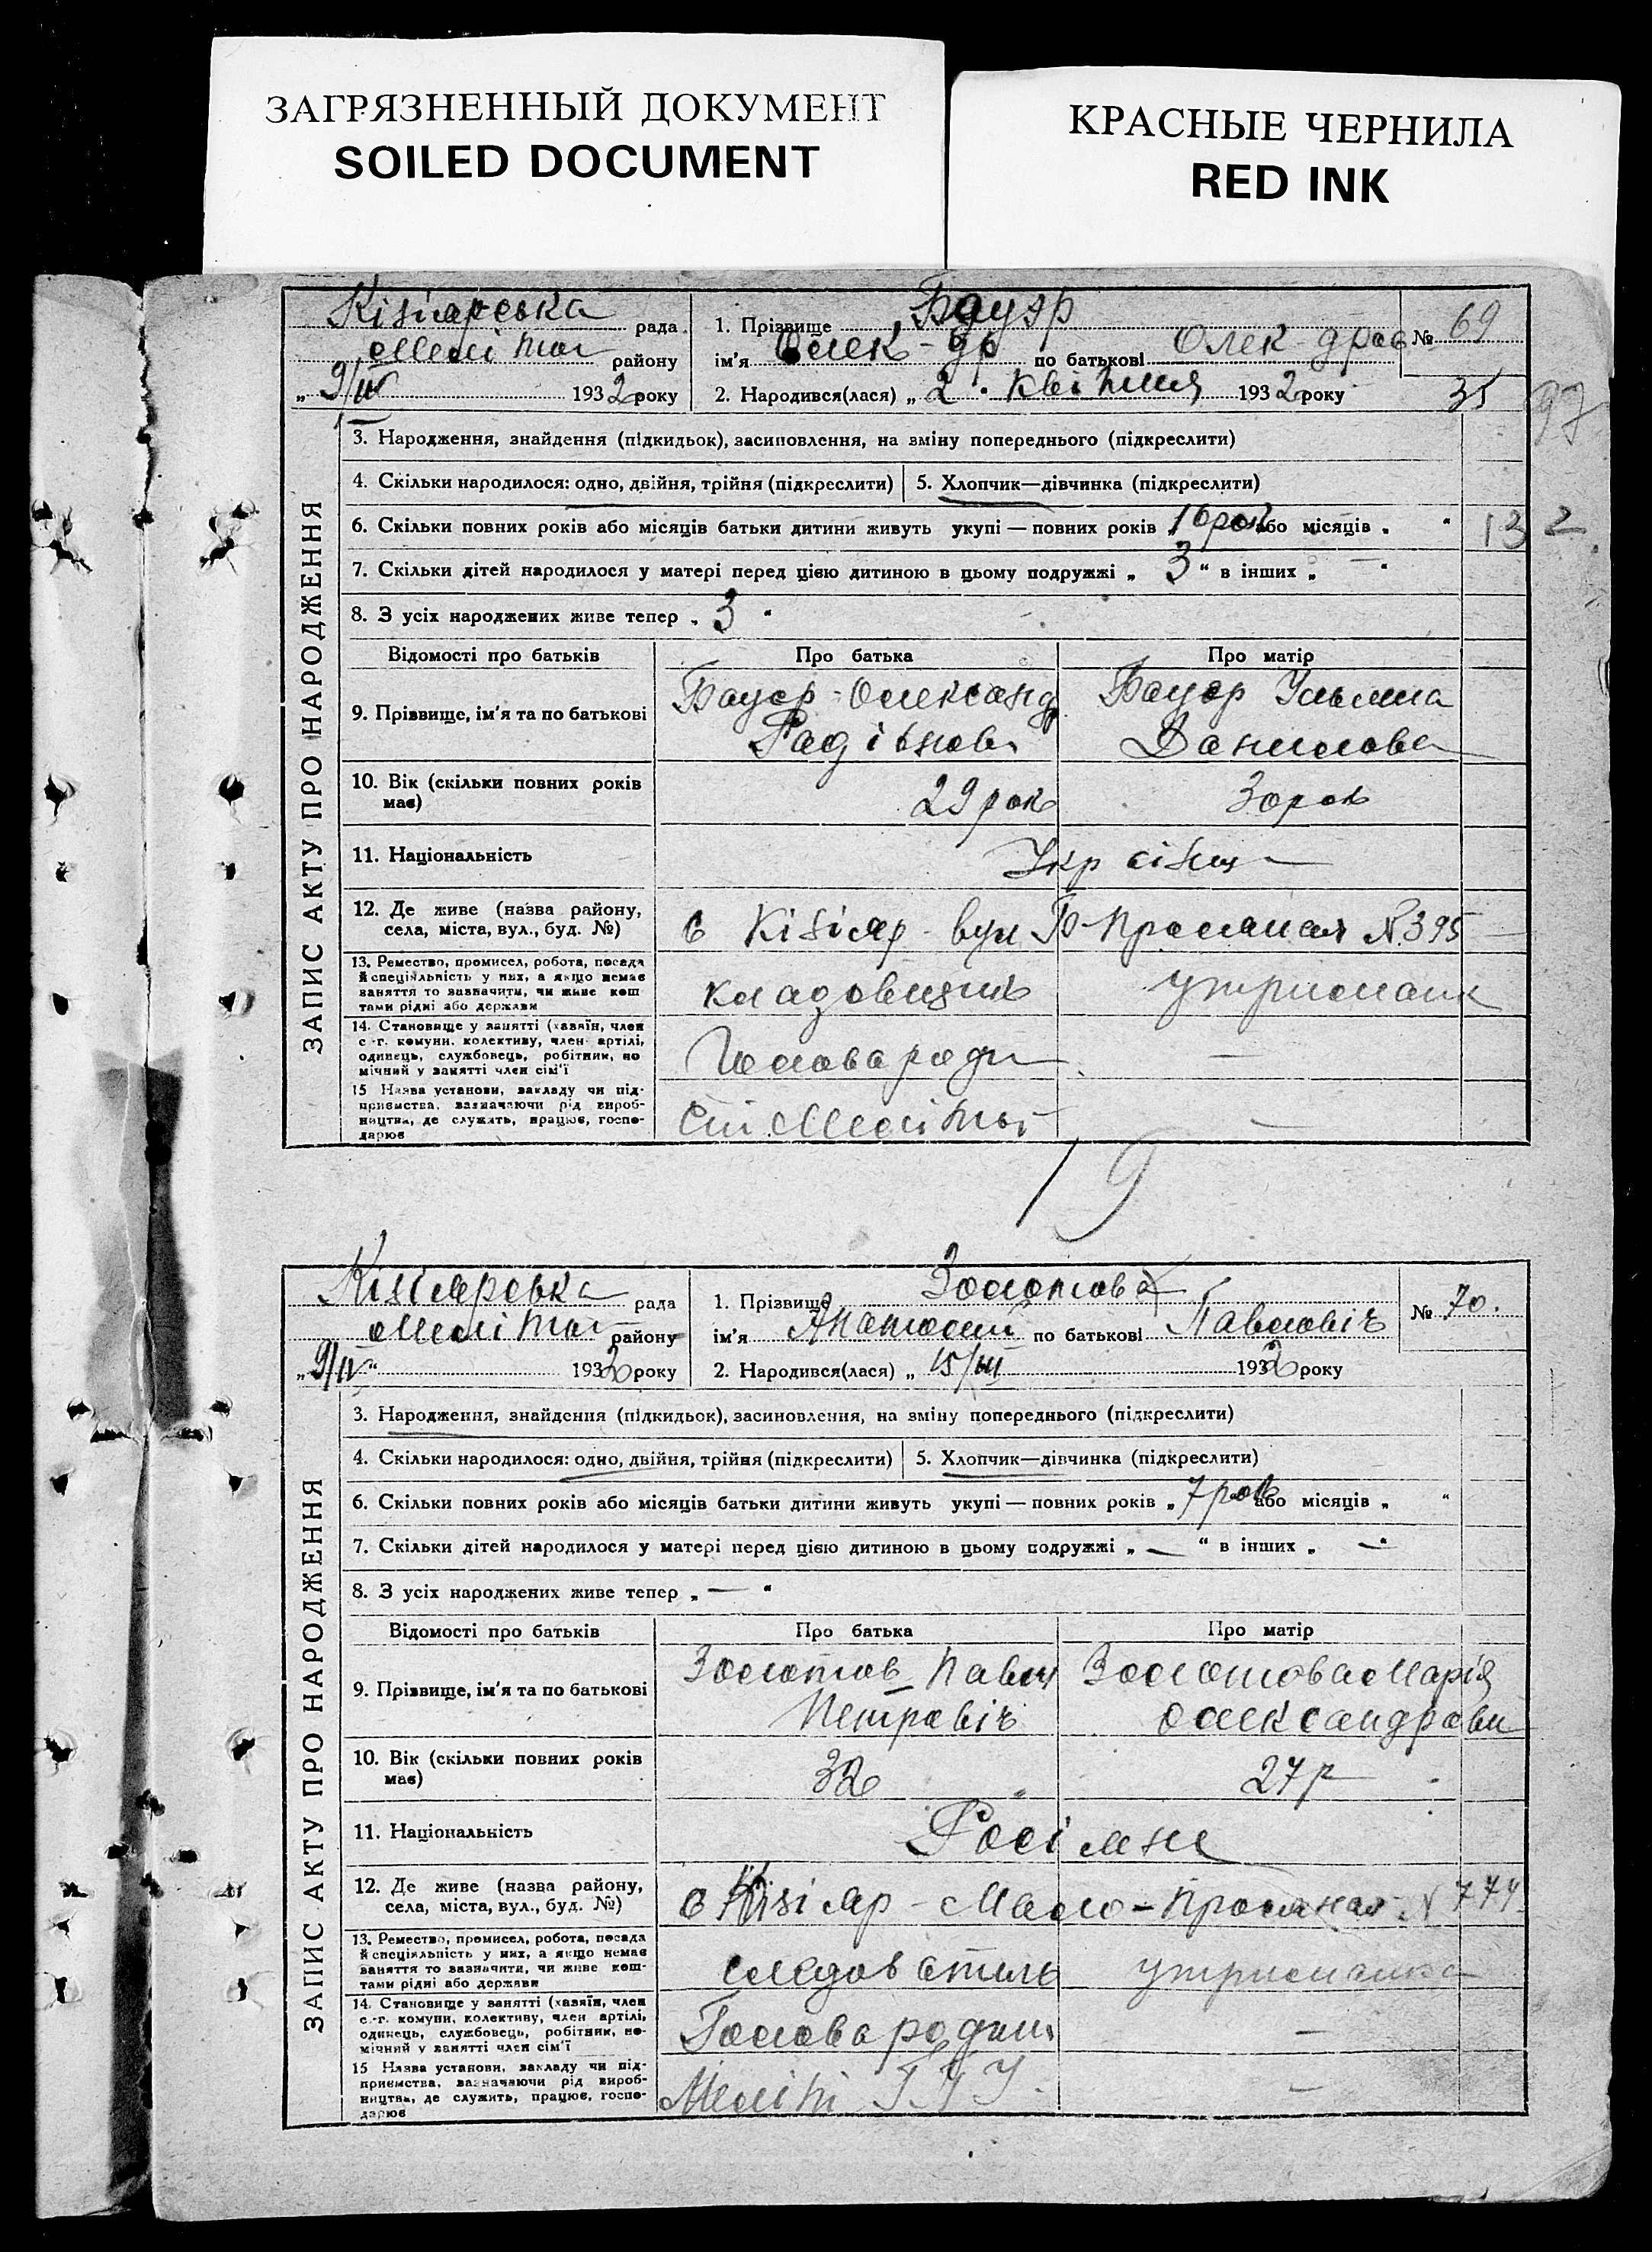 ЗАГРЯЗНЕННЫЙ ДОКУМЕНТ
SOILED DOCUMENT
КРАСНЫЕ ЧЕРНИЛА
RED INK
ЗАПИС АКТУ ПРО НАРОДЖЕННЯ
Кізіярська рада
Меліто району
„ 9/IV 1932 року
1. Прізвище Бауэр
ім'я Олек-др по батькові Олек-дров
№ 69
2. Народився(лася) „ 2 " Квітння 1932 року
35 97
3. Народження, знайдення (підкидьок), засиновлення, на зміну попереднього (підкреслити)
4. Скільки народилося: одно, двійня, трійня (підкреслити) 5. Хлопчик—дівчинка (підкреслити)
6. Скільки повних років або місяців батьки дитини живуть укупі — повних років „ 10 рок або місяців „ " 13 2
7. Скільки дітей народилося у матері перед цією дитиною в цьому подружжі „ 3 " в інших „ — "
8. З усіх народжених живе тепер „ 3 "
Відомості про батьків Про батька Про матір
9. Прізвище, ім'я та по батькові
Бауєр-Олександ
Радівнов
Бауєр Ульяна
Данилова
10. Вік (скільки повних років має) 29 рок 30 рок
11. Національність Укр аінц
12. Де живе (назва району, села, міста, вул., буд. №) с Кізіяр - вул Б-Продляная №395
13. Ремество, промисел, робота, посада
й спеціяльність у них, а якщо немає
заняття то зазначити, чи живе кош-
тами рідні або держави
кладовщик утриманк
14. Становище у занятті (хазяїн, член
с.-г. комуни, колективу, член артілі,
одинець, службовець, робітник, по-
мічний у занятті член сім'ї
Голова роди —
15 Назва установи, закладу чи під-
приємства, зазначаючи рід вироб-
ництва, де служить, працює, госпо-
дарює
Меліто —
19
ЗАПИС АКТУ ПРО НАРОДЖЕННЯ
Кізіярська рада
Меліто району
„ 9/IV " 1932 року
1. Прізвище Золотова
ім'я Анатолій по батькові Павловіч
№ 70.
2. Народився(лася) „ 15/III 1932 року
3. Народження, знайдення (підкидьок), засиновлення, на зміну попереднього (підкреслити)
4. Скільки народилося: одно, двійня, трійня (підкреслити) 5. Хлопчик—дівчинка (підкреслити)
6. Скільки повних років або місяців батьки дитини живуть укупі — повних років „ 7 рок або місяців „ "
7. Скільки дітей народилося у матері перед цією дитиною в цьому подружжі „ — " в інших „ — "
8. З усіх народжених живе тепер „ — "
Відомості про батьків Про батька Про матір
9. Прізвище, ім'я та по батькові
Золотов Павел
Петровіч
Золотова Марія
Олександровн
10. Вік (скільки повних років має) 32 27 р
11. Національність Росіяне
12. Де живе (назва району, села, міста, вул., буд. №) с Кізіяр - Мало-Продляная № 774
13. Ремество, промисел, робота, посада
й спеціяльність у них, а якщо немає
заняття то зазначити, чи живе кош-
тами рідні або держави
следоватиль утриманка
14. Становище у занятті (хазяїн, член
с.-г. комуни, колективу, член артілі,
одинець, службовець, робітник, по-
мічний у занятті член сім'ї
Голова родин —
15 Назва установи, закладу чи під-
приємства, зазначаючи рід вироб-
ництва, де служить, працює, госпо-
дарює
Меліт ГПУ. —